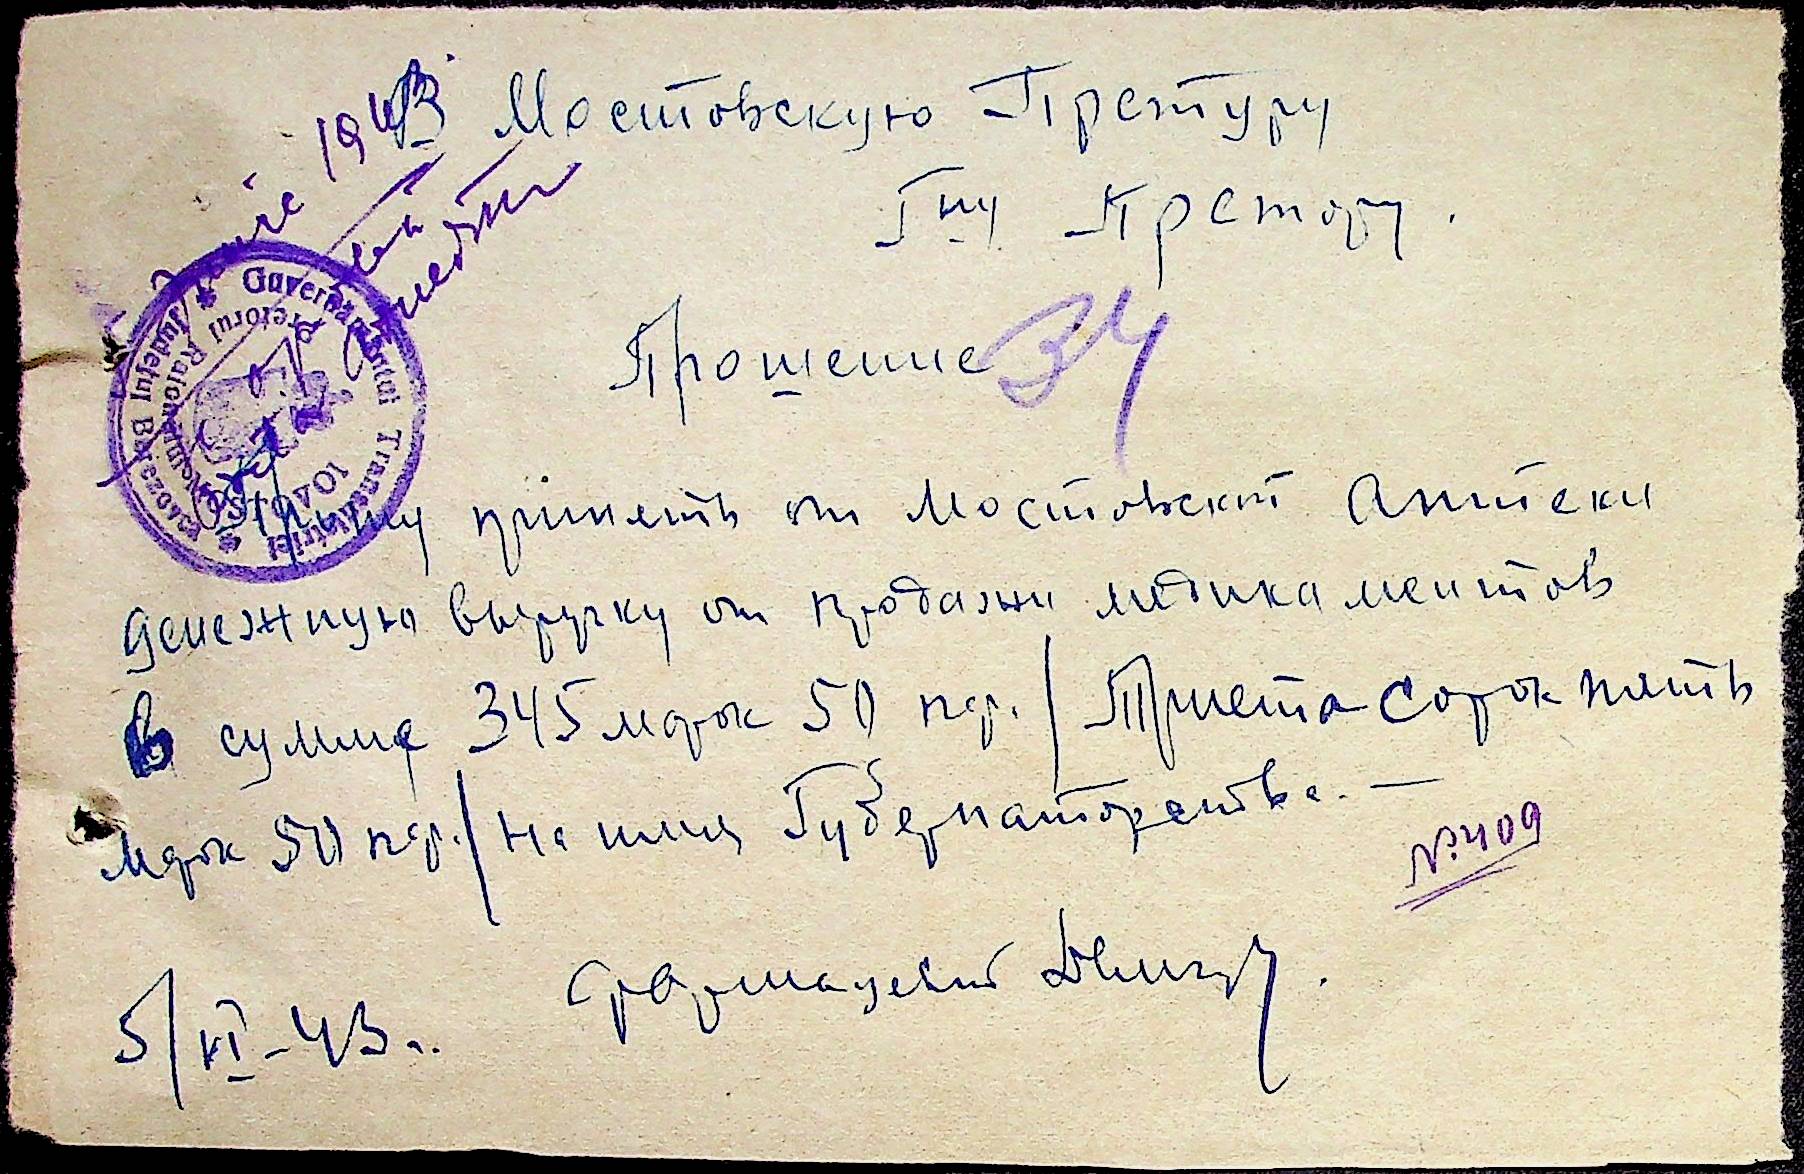 В Мостовскую Претуру
Гну Претору.
Прошение
34
Прошу принять от Мостовской Аптеки
денежную выручку от продажи медикаментов
в сумме 345 марок 50 пф. / Триста сорок пять
марок 50 пф. / на имя Губернаторства. —
№ 409
Фармацевт
5/VI-43 г.
1943
Guvernamântul Transnistriei
Județul Berezovca
Pretorul Raionului
Mostovoi